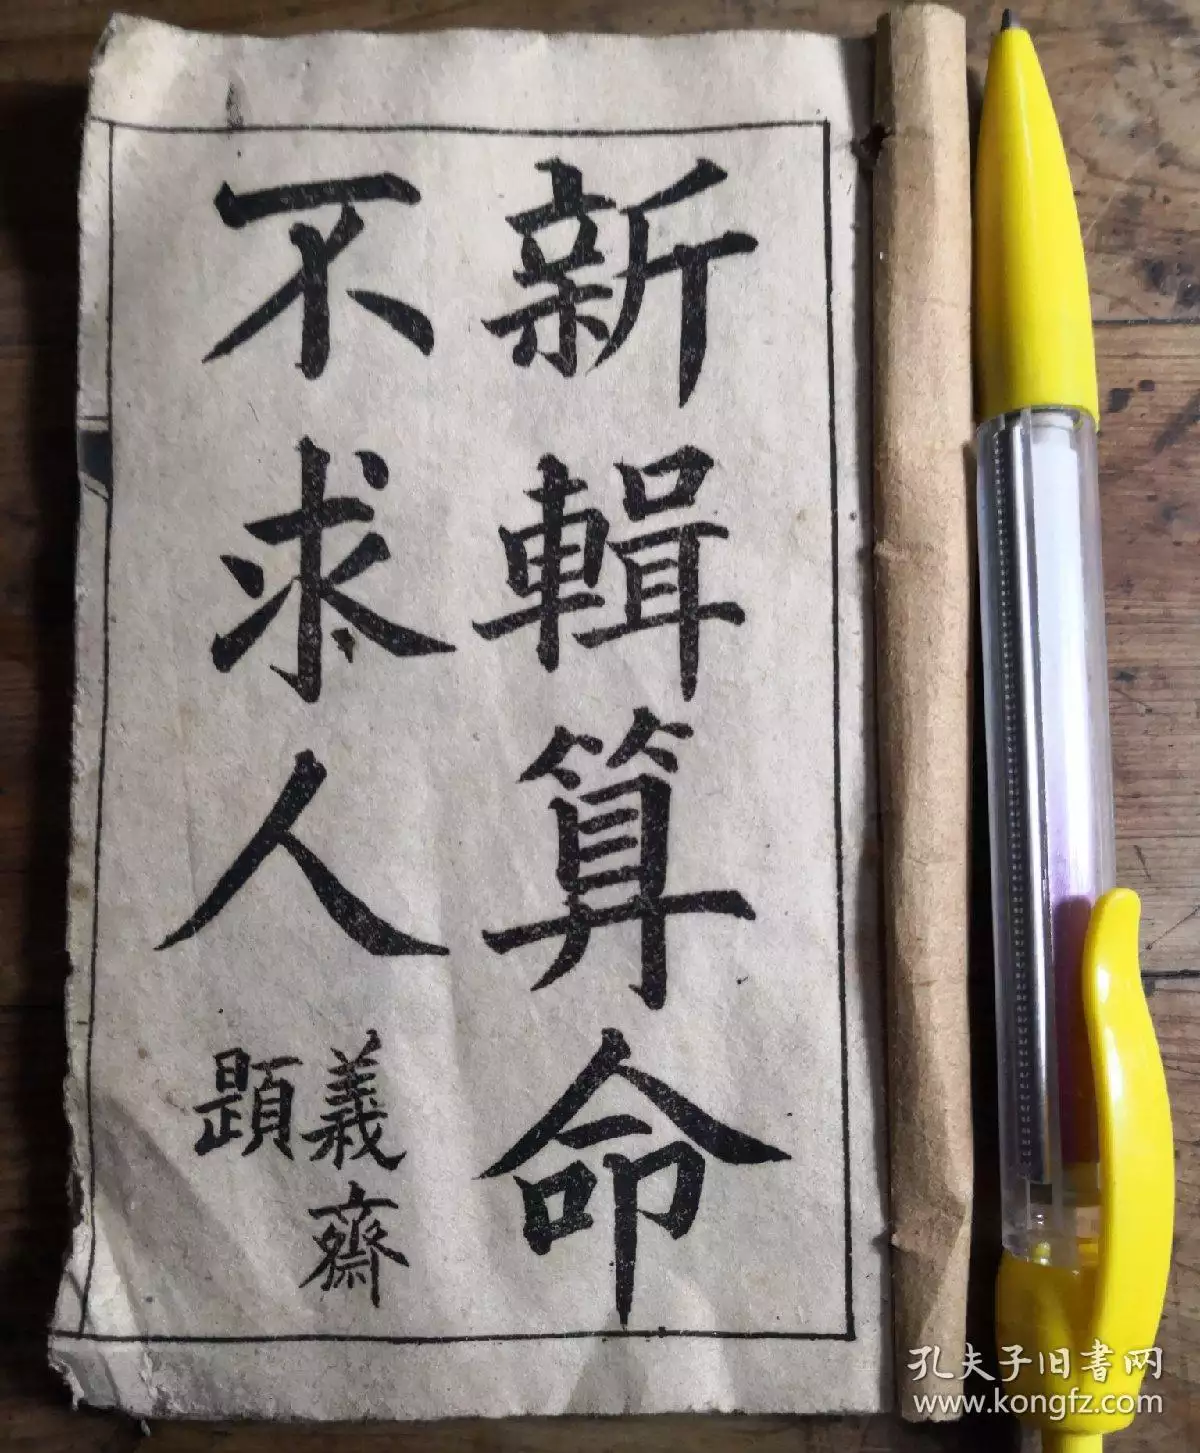 新輯算命
不求人
義齋
題
孔夫子旧書网
www.kongfz.com